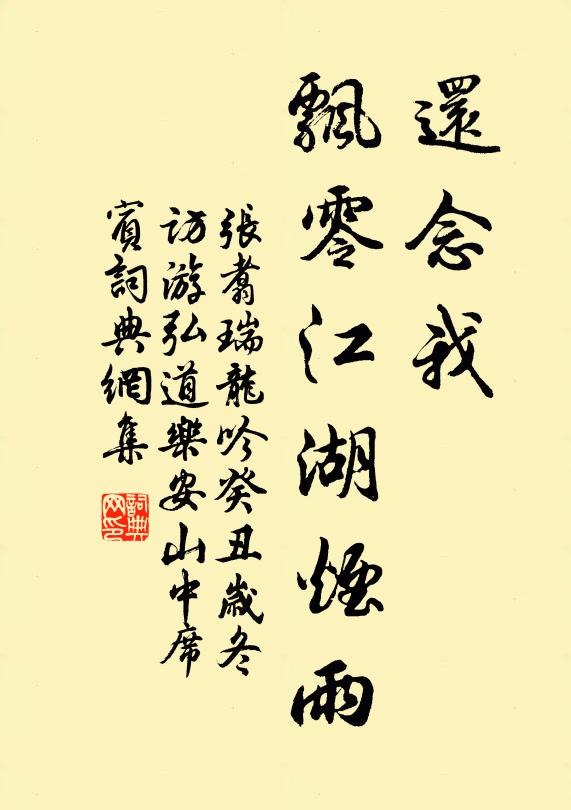 還念我
飄零江湖煙雨
張翥瑞龍吟癸丑歲冬
訪游弘道樂安山中席
賓詞典網集
詞典
网印